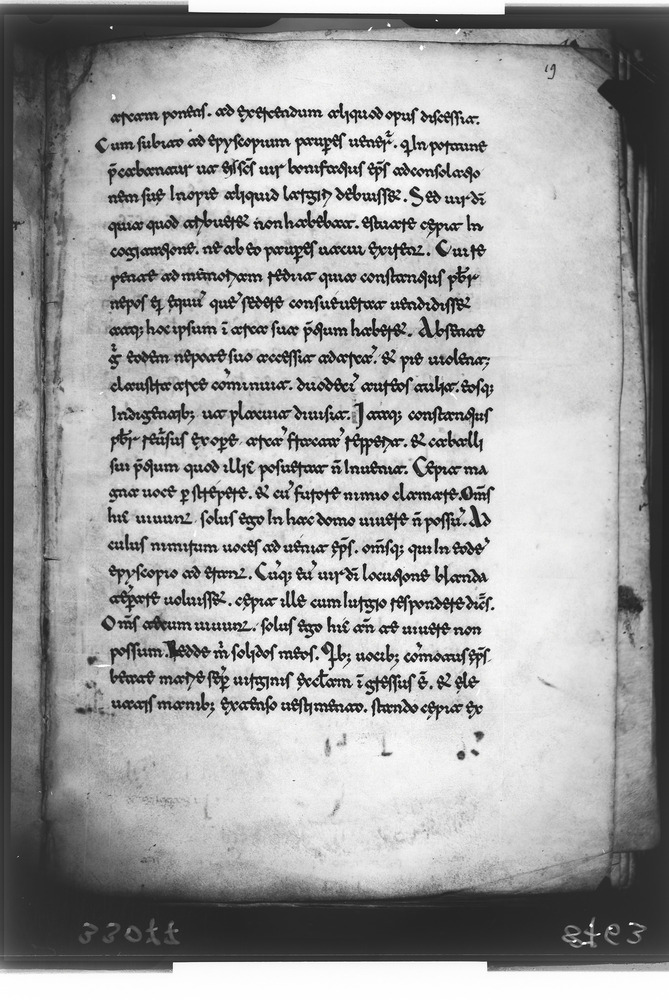 19
arcam ponens. ad exercendum aliquod opus discessit.
Cum subito ad epyscopium pauperes uener̄. qui In portune
p̄cabantur ut eis scs̄ uir bonifatius ep̄s ad consolatio
nem sue Inopie aliquid largiri debuisset. Sed uir dī
quia quod tribueret non habebat. estuare cepit In
cogitatione. ne ab eo pauperes uacui exirent. Cui re
pente ad memoriam rediit quia constantius pb̄r
nepos ei equū quē sedere consueuerat uendidisset
atq; hoc ipsum ī arca sua p̄tium haberet. Absente
g̊ eodem nepote suo accessit ad arcā. & pie uiolent;
claustra arce cōminuit. duodecī aureos tulit. eosq;
Indigentib; ut placuit diuisit. Itaq; constantius
pb̄r reūsus ex opere arcā fractā repperit. & caballi
sui p̄tium quod illic posuerat n̄ Inuenit. Cepit ma
gna uoce pstrepere. & cū furore nimio clamare. Om̄s
hic uiuunt solus ego In hac domo uiuere n̄ possū. Ad
cuius nimirum uoces aduenit ep̄s. om̄sq; qui In eodē
epyscopio aderant. Cūq; eū uir dī locutione blanda
tēperare uoluisset. cepit ille cum iurgio respondere dicēs.
Om̄s tecum uiuunt. solus ego hic an̄ te uiuere non
possum. Redde m̄ solidos meos. Qb; uocib; cōmotus ep̄s
beate marie sēp uirginis eccl̄am īgressus ē. & ele
uatis manib; extenso uestimento. stando cepit ex